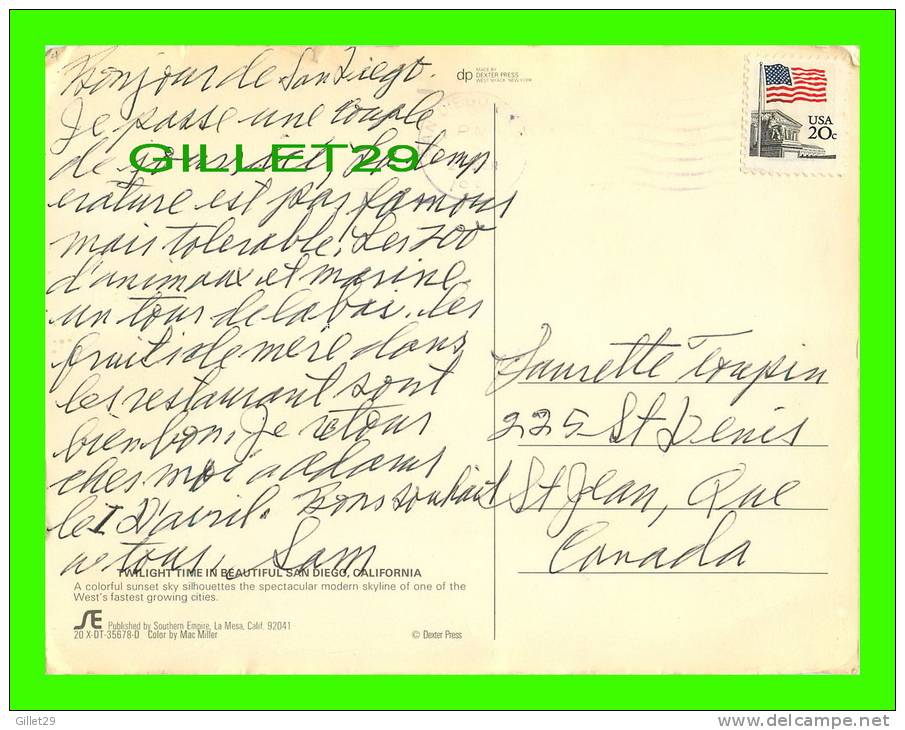 Bonjour de San Diego.
Je passe une couple
de ici, la temp
erature est pas famous
mais tolerable. Les zoo
d'animaux et marine
un tour de la bai. Les
fruits de mere dans
les restaurant sont
bien bon. Je retour
ches moi a adams
le 1 d'avril. Bons souhait
a tous, Sam
GILLET29
dp MADE BY
DEXTER PRESS
WEST NYACK, NEW YORK
USA
20c
Laurette Toupin
225 St Denis
St Jean, Que
Canada
TWILIGHT TIME IN BEAUTIFUL SAN DIEGO, CALIFORNIA
A colorful sunset sky silhouettes the spectacular modern skyline of one of the
West's fastest growing cities.
SE Published by Southern Empire, La Mesa, Calif. 92041
20 X-DT-35678-D Color by Mac Miller
© Dexter Press
Gillet29
http://www.delcampe.net